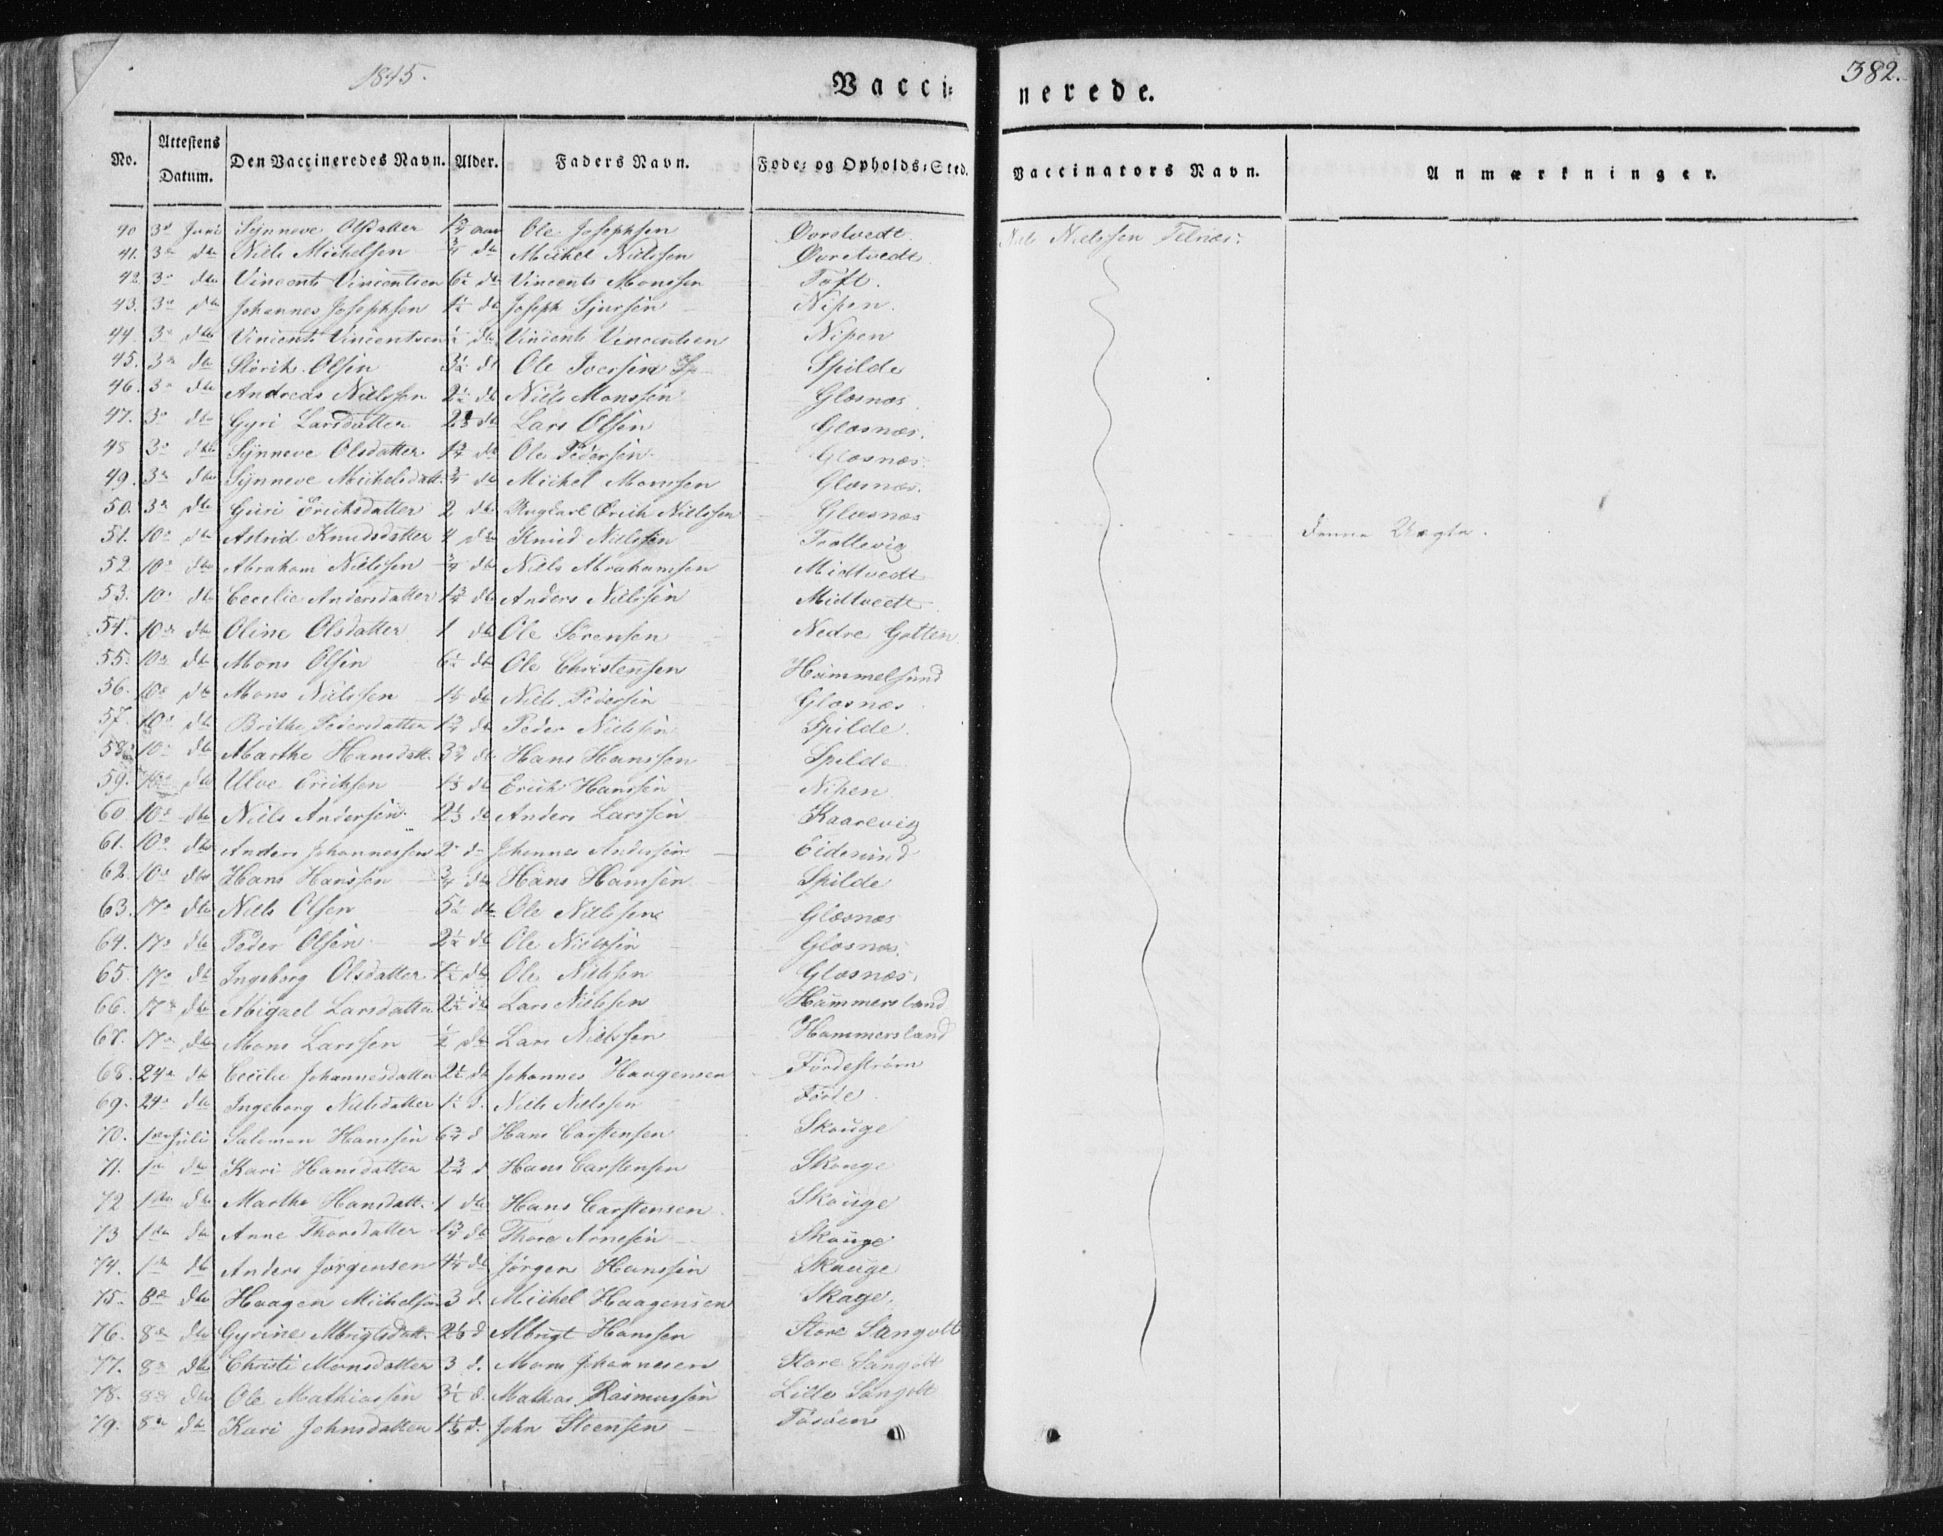 1845.
Vacci= nerede.
382.
No. Attestens Datum. Den Vaccineredes Navn. Alder. Faders Navn. Føde= og Opholds=Sted. Vaccinators Navn. Anmærkninger.
40 3die Juni Synneve Olsdatter 1¾ aar Ole Josephsen Øvretvedt. Nielssen
41. 3die dto Niels Michelsen ¾ dto Michel Nielssen Øvretvedt.
42. 3die dto Vincents Vincentsen 6½ dto Vincents Monssen Toft.
43. 3die dto Johannes Josephsen 1½ dto Joseph Sjursen Nipen.
44. 3die dto Vincents Vincentsen dto Vincents Vincentsen Nipen
45. 3die dto Olsen 3½ dto Ole Iversen Spilde
46. 3die dto Andreas Nielssen 2½ dto Niels Monssen Glæsnæs
47. 3die dto Gyri Larsdatter dto Lars Olsen Glæsnæs.
48 3die dto Synneve Olsdatter 1¾ dto Ole Pedersen Glæsnæs.
49. 3die dto Synneve Michelsdatt. ¾ dto Michel Monssen Glæsnæs.
50. 3die dto Guri Erichsdatter 2 dto Erich Nielssen Glæsnæs
51. 10de dto Astrid Knudsdatter 4 dto Knud Nielssen Trællevig
52 10de dto Abraham Nielssen ¾ dto Niels Abrahamsen Midtvedt
53. 10de dto Cecilie Andersdatter 1¾ dto Anders Nielssen Midtvedt
54. 10de dto Oline Olsdatter 1 dto Ole Sørensen Nedre Gotten
55. 10de dto Mons Olsen 6½ dto Ole Christensen Hummelsund
56. 10de dto Mons Nielssen 1½ dto Niels Pedersen Glæsnæs
57. 10de dto Brithe Pedersdatter 1¾ dto Peder Nielssen Spilde.
58. 10de dto Marthe Hansdatt. 3¾ dto Hans Hanssen Spilde
59. 10de dto Ulve Erichsen dto Erich Hanssen Nipen
60. 10de dto Niels Andersen 2⅓ dto Anders Larssen Kaarevig
61. 10de dto Anders Johannessen 2 d. Johannes Andersen Eidesund
62. 10de dto Hans Hanssen ¾ dto Hans Hanssen Spilde
63. 17de dto Niels Olsen 5½ dto Ole Nielssen Glæsnæs
64. 17de dto Peder Olsen 2½ dto Ole Nielssen Glæsnæs.
65. 17de dto Ingeborg Olsdatter 1½ dto Ole Nielssen Glæsnæs
66. 17de dto Abigael Larsdatter 2½ dto Lars Nielssen Hammersland
67. 17de dto Mons Larssen ½ dto Lars Nielssen Hammersland
68. 24de dto Cecilie Johannesdatter 2½ dto Johannes Haagensen Førdestrøm
69. 24de dto Ingeborg Nielsdatter 1½ d. Niels Nielssen Førde
70. 1ste Juli Salomon Hanssen 6¾ d Hans Carstensen Skouge
71. 1ste dto Kari Hansdatter 2¾ d Hans Carstensen Skouge
72 1ste dto Marthe Hansdatt. 1 dto Hans Carstensen Skouge
73 1ste dto Anne Thorsdatter 1¾ dto Thore Arnesen Skouge
74. 1ste dto Anders Jørgensen 4½ dto Jørgen Hanssen Skouge
75. 8de dto Haagen Michelsen 3 d. Michel Haagensen Skage.
76. 8de dto Gyrine Albrigtsdatt. d Albrigt Hanssen Store Sangolt
77. 8de dto Christi Monsdatter 3 d. Mons Johannesen Store Sangolt
78. 8de dto Ole Mathiassen 3½ d. Mathias Rasmussen Lille Sangolt
79. 8de dto Kari Johnsdatter d. John Steensen